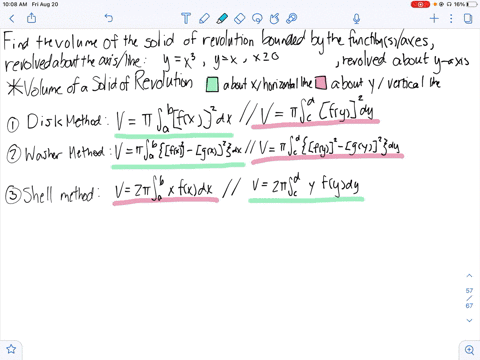 10:08 AM Fri Aug 20
16%
Find the volume of the solid of revolution bounded by the function(s)/axes,
revolved about the axis/line: y = x³, y = x, x ≥ 0, revolved about y-axis
* Volume of a Solid of Revolution about x/horizontal line about y/vertical line
① Disk Method: V = π∫ₐᵇ[f(x)]²dx // V = π∫꜀ᵈ[f(y)]²dy
② Washer Method: V = π∫ₐᵇ{[f(x)]² - [g(x)]²}dx // V = π∫꜀ᵈ{[f(y)]² - [g(y)]²}dy
③ Shell method: V = 2π∫ₐᵇ x f(x)dx // V = 2π∫꜀ᵈ y f(y)dy
57
/
67